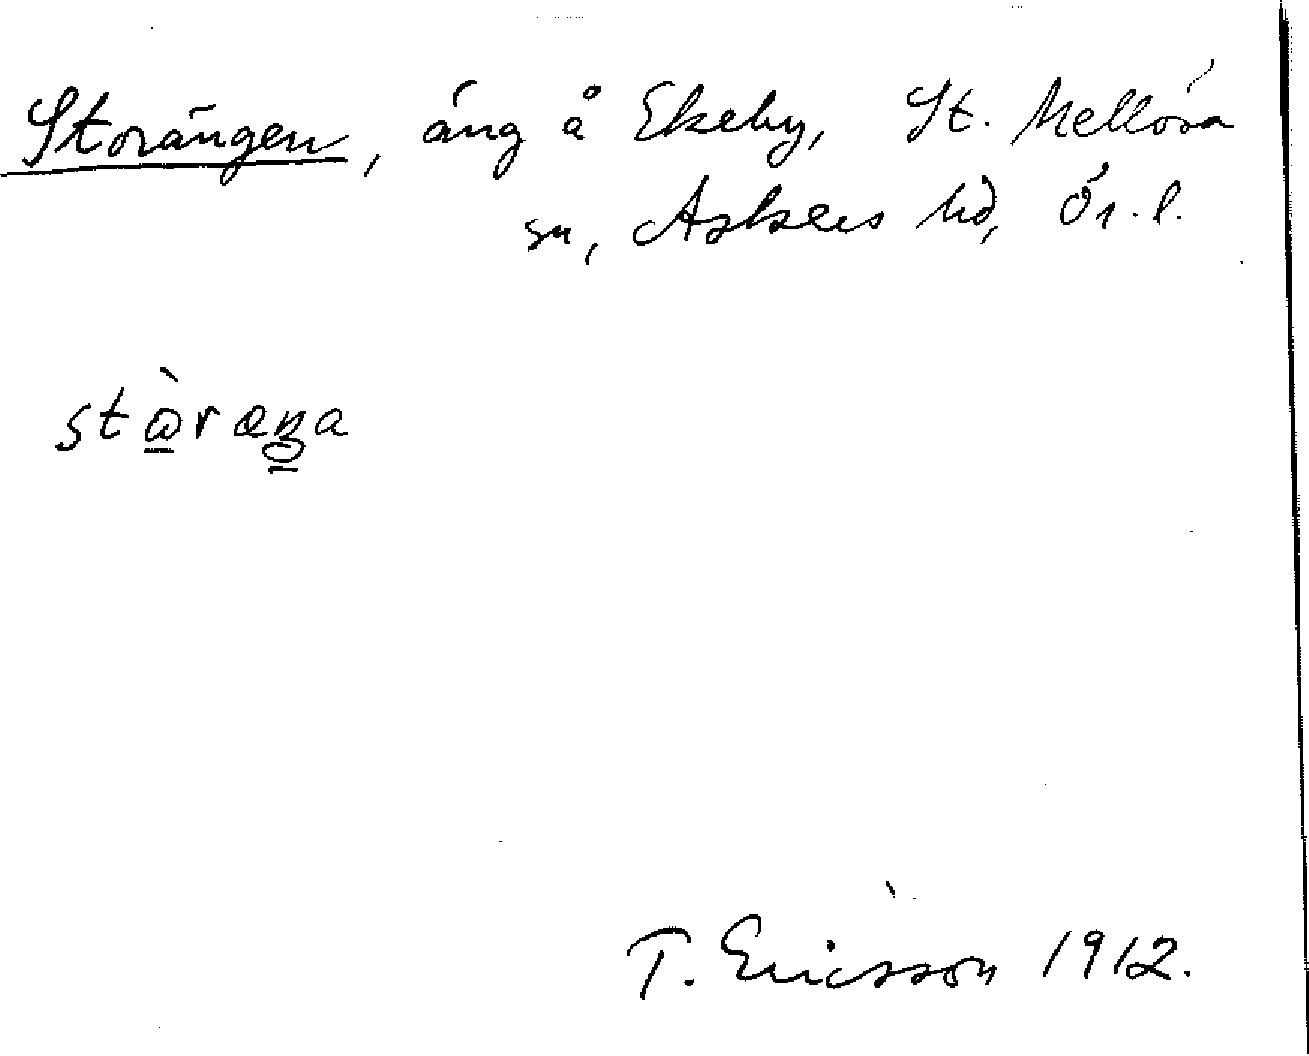 Storängen, äng å Ekeby, St. Mellösa
sn, Askers hd, Ör. l.
stὼræŋa
T. Ericsson 1912.